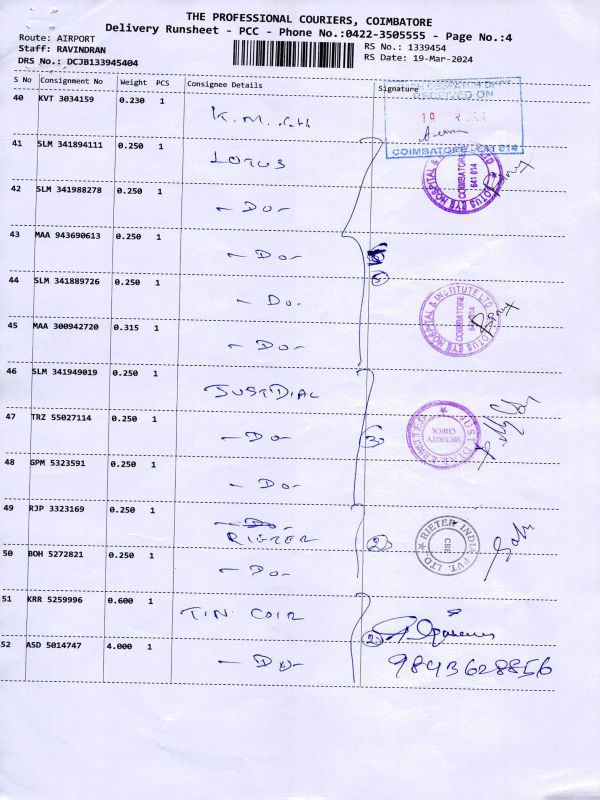 THE PROFESSIONAL COURIERS, COIMBATORE
Delivery Runsheet - PCC - Phone No.:0422-3505555 - Page No.:4
Route: AIRPORT
Staff: RAVINDRAN
DRS No.: DCJB133945404
RS No.: 1339454
RS Date: 19-Mar-2024
S No Consignment No Weight PCS Consignee Details Signature
RECEIVED ON
19
COIMBATORE - 641 014
40 KVT 3034159 0.230 1 K.M.
41 SLM 341894111 0.250 1 LOTUS
LOTUS EYE HOSPITAL & COIMBATORE 641 014
42 SLM 341988278 0.250 1 - Do -
43 MAA 943690613 0.250 1 - Do -
5
44 SLM 341889726 0.250 1 - Do -
LOTUS EYE HOSPITAL & INSTITUTE LTD COIMBATORE 641 014
45 MAA 300942720 0.315 1 - Do -
46 SLM 341949019 0.250 1 JUSTDIAL
47 TRZ 55027114 0.250 1 - Do -
3
JUST DIAL LIMITED SECURITY CHECK
48 GPM 5323591 0.250 1 - Do -
49 RJP 3323169 0.250 1 - Do -
RIETER
2
RIETER INDIA PVT. LTD. CBE
50 BOH 5272821 0.250 1 - Do -
51 KRR 5259996 0.600 1 TIN. COIR
2
52 ASD 5014747 4.000 1 - Do -
9843628856